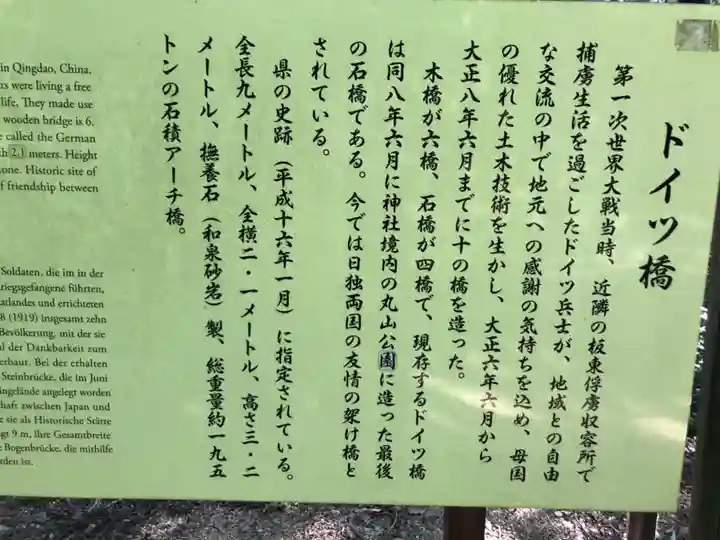 ドイツ橋
第一次世界大戦当時、近隣の板東俘虜収容所で
捕虜生活を過ごしたドイツ兵士が、地域との自由
な交流の中で地元への感謝の気持ちを込め、母国
の優れた土木技術を生かし、大正六年六月から
大正八年六月までに十の橋を造った。
木橋が六橋、石橋が四橋で、現存するドイツ橋
は同八年六月に神社境内の丸山公園に造った最後
の石橋である。今では日独両国の友情の架け橋と
されている。
県の史跡(平成十六年一月)に指定されている。
全長九メートル、全横二・一メートル、高さ三・二
メートル、撫養石(和泉砂岩)製、総重量約一九五
トンの石積アーチ橋。
in Qingdao, China.
ns were living a free
life, They made use
wooden bridge is 6.
e called the German
h 2.1 meters. Height
one. Historic site of
f friendship between
Soldaten, die im in der
riegsgefangene führten,
atlandes und errichteten
8 (1919) insgesamt zehn
Bevölkerung, mit der sie
l der Dankbarkeit zum
erbaut. Bei der erhalten
Steinbrücke, die im Juni
ingelände angelegt worden
haft zwischen Japan und
e sie als Historische Stätte
gt 9 m, ihre Gesamtbreite
e Bogenbrücke, die mithilfe
rden ist.